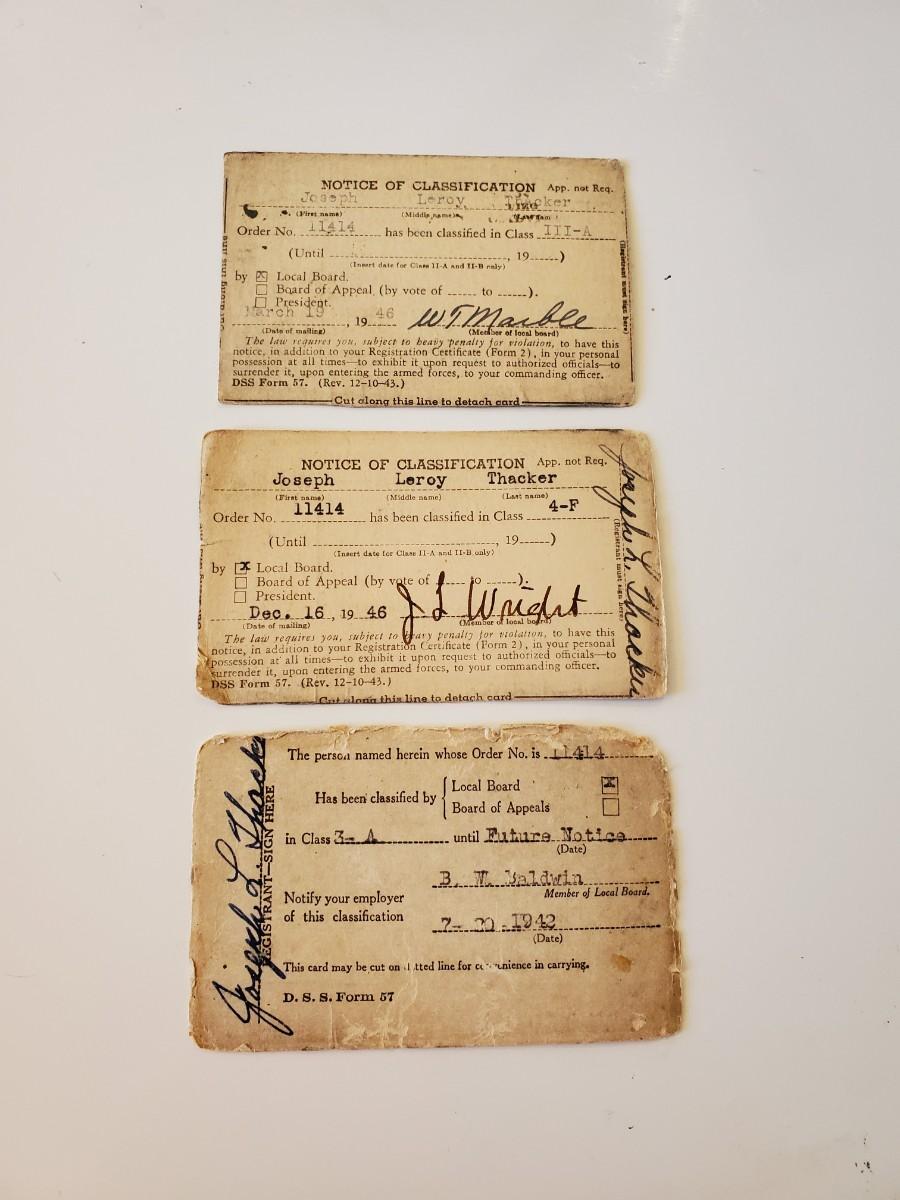 NOTICE OF CLASSIFICATION App. not Req.
Joseph Leroy Thacker
(First name) (Middle name)
Order No. 11414 has been classified in Class III-A
(Until , 19 )
(Insert date for Class II-A and II-B only)
by ☒ Local Board.
☐ Board of Appeal (by vote of to ).
☐ President.
March 19, 19 46 W T Marble
(Date of mailing) (Member of local board)
The law requires you, subject to heavy penalty for violation, to have this
notice, in addition to your Registration Certificate (Form 2), in your personal
possession at all times—to exhibit it upon request to authorized officials—to
surrender it, upon entering the armed forces, to your commanding officer.
DSS Form 57. (Rev. 12-10-43.)
Cut along this line to detach card
(Registrant must sign here)
NOTICE OF CLASSIFICATION App. not Req.
Joseph Leroy Thacker
(First name) (Middle name) (Last name)
Order No. 11414 has been classified in Class 4-F
(Until , 19 )
(Insert date for Class II-A and II-B only)
by ☒ Local Board.
☐ Board of Appeal (by vote of to ).
☐ President.
Dec. 16, 19 46 J L Wright
(Date of mailing) (Member of local board)
The law requires you, subject to heavy penalty for violation, to have this
notice, in addition to your Registration Certificate (Form 2), in your personal
possession at all times—to exhibit it upon request to authorized officials—to
surrender it, upon entering the armed forces, to your commanding officer.
DSS Form 57. (Rev. 12-10-43.)
Cut along this line to detach card
Joseph L. Thacker
(Registrant must sign here)
The person named herein whose Order No. is 11414
Has been classified by { Local Board ☒
Board of Appeals ☐
in Class 3-A until Future Notice
(Date)
B. W. Baldwin
Member of Local Board.
Notify your employer
of this classification
7- -1942
(Date)
This card may be cut on dotted line for convenience in carrying.
D. S. S. Form 57
Joseph L Thacker
REGISTRANT—SIGN HERE